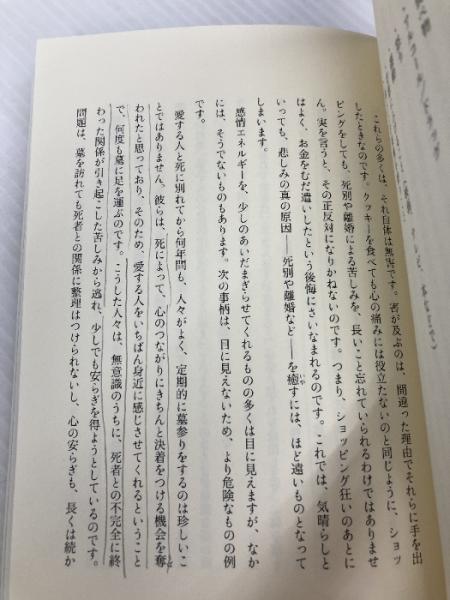 これらの多くは、それ自体は無害です。害が及ぶのは、間違った理由でそれらに手を出
したときなのです。クッキーを食べても心の痛みには役立たないのと同じように、ショッ
ピングをしても、死別や離婚による苦しみを、長いこと忘れていられるわけではありませ
ん。実を言うと、その正反対になりかねないのです。つまり、ショッピング狂いのあとに
はよく、お金をむだ遣いしたという後悔にさいなまれるのです。これでは、気晴らしと
いっても、悲しみの真の原因――死別や離婚など――を癒すには、ほど遠いものとなって
しまいます。
感情エネルギーを、少しのあいだまぎらせてくれるものの多くは目に見えますが、なか
には、そうでないものもあります。次の事柄は、目に見えないため、より危険なものの例
です。
愛する人と死に別れてから何年間も、人々がよく、定期的に墓参りをするのは珍しいこ
とではありません。彼らは、死によって、心のつながりにきちんと決着をつける機会を奪
われたと思っており、そのため、愛する人をいちばん身近に感じさせてくれるということ
で、何度も墓に足を運ぶのです。こうした人々は、無意識のうちに、死者との不完全に終
わった関係が引き起こした苦しみから逃れ、少しでも安らぎを得ようとしているのです。
問題は、墓を訪れても死者との関係に整理はつけられないし、心の安らぎも、長くは続か